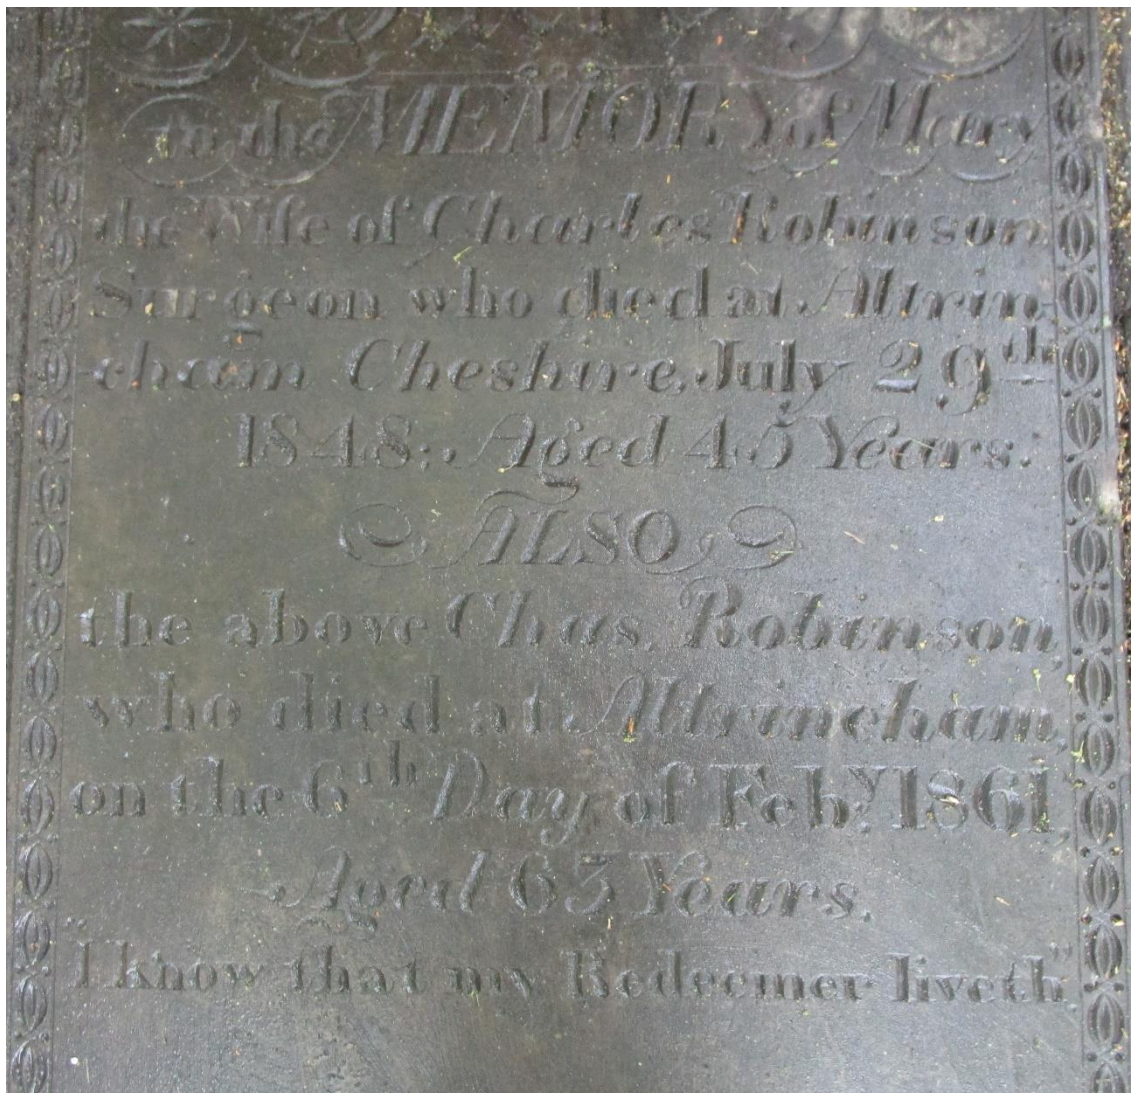 to the MEMORY of Mercy
the Wife of Charles Robinson
Surgeon who died at Altrin-
-cham Cheshire, July 29th
1848; Aged 45 Years.
ALSO
the above Chas. Robinson,
who died at Altrincham,
on the 6th Day of Feby. 1861,
Aged 63 Years.
"I know that my Redeemer liveth"